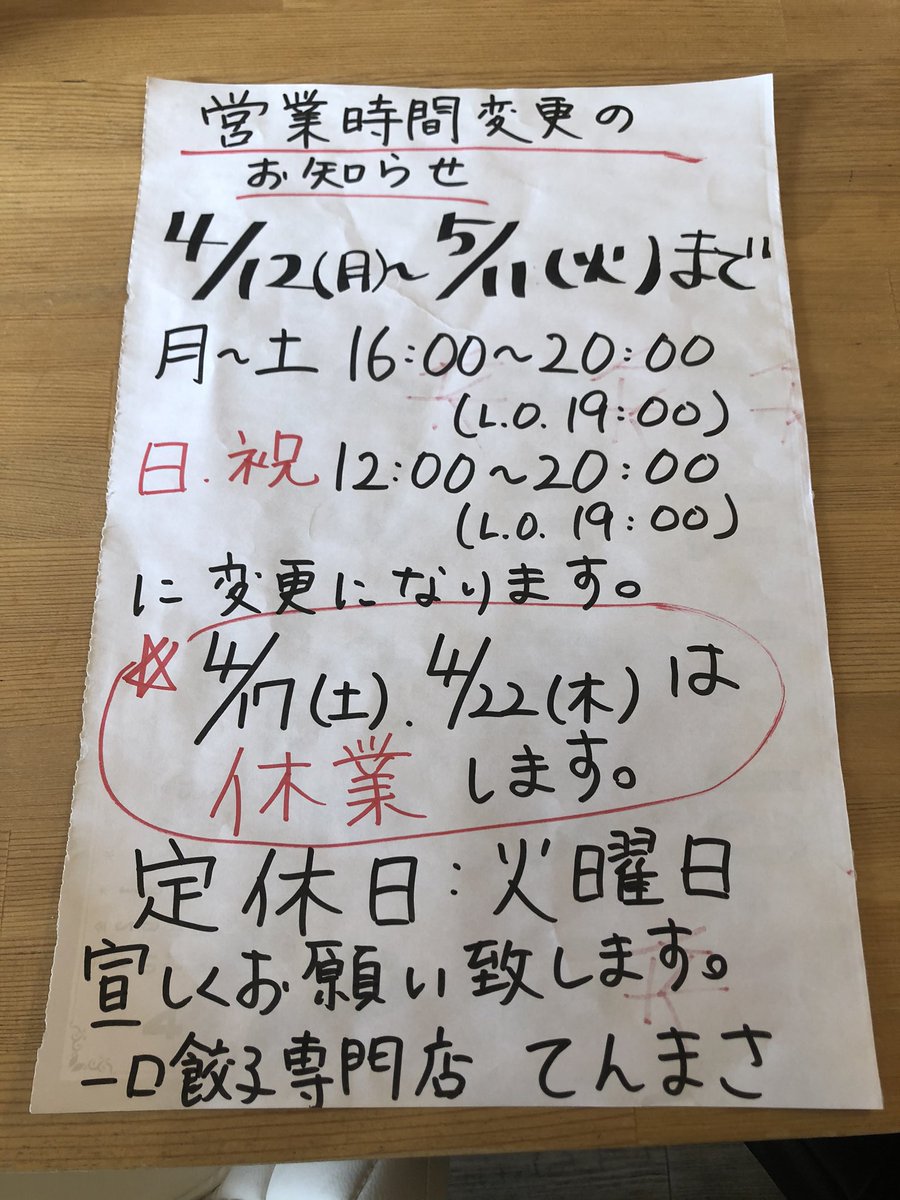 営業時間変更の
お知らせ
4/12(月)~5/11(火)まで
月~土 16:00~20:00
(L.O. 19:00)
日.祝 12:00~20:00
(L.O. 19:00)
に変更になります。
☆4/17(土).4/22(木)は
休業します。
定休日:火曜日
宜しくお願い致します。
一口餃子専門店 てんまさ